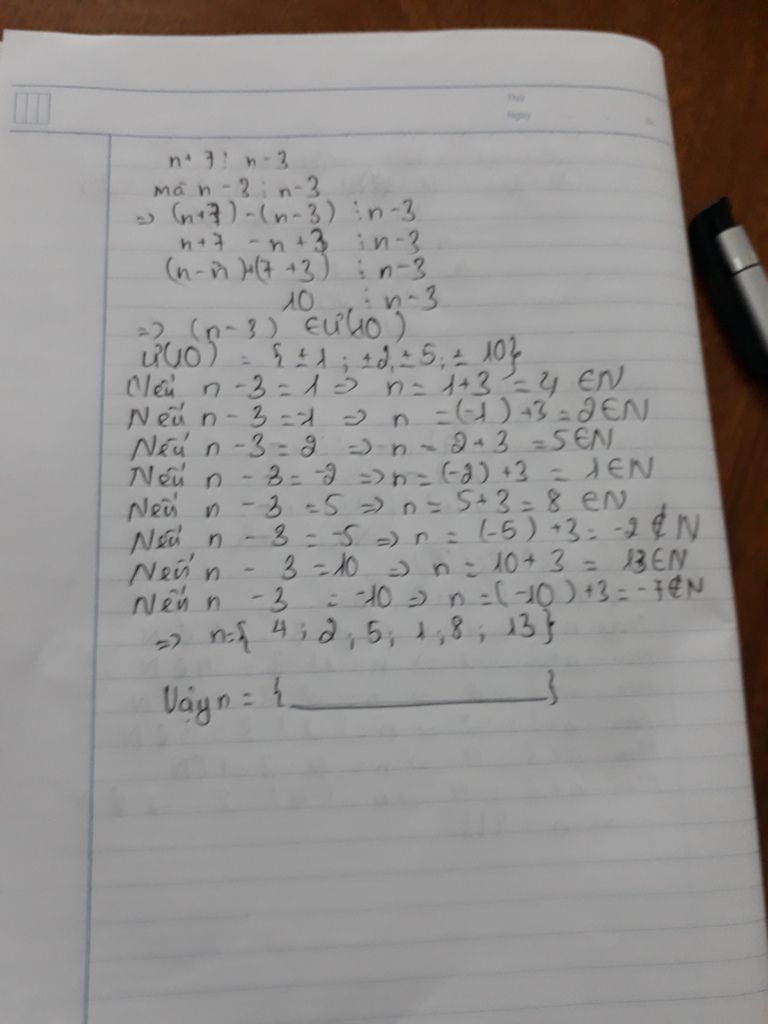 Ngày
n+ 7 ⋮ n-3
mà n - 3 ⋮ n-3
=> (n+7) - (n-3) ⋮ n-3
n+7 - n + 3 ⋮ n-3
(n-n)+(7 +3) ⋮ n-3
10 ⋮ n-3
=> (n-3) ∈Ư(10)
Ư(10) = {±1; ±2, ±5; ±10}
Nếu n - 3 = 1 => n = 1+3 = 4 ∈N
Nếu n - 3 = -1 => n = (-1) +3 = 2∈N
Nếu n - 3 = 2 => n = 2+3 = 5∈N
Nếu n - 3 = -2 => n = (-2) +3 = 1∈N
Nếu n - 3 = 5 => n = 5+3 = 8 ∈N
Nếu n - 3 = -5 => n = (-5) +3 = -2 ∉ N
Nếu n - 3 = 10 => n = 10+ 3 = 13∈N
Nếu n - 3 = -10 => n = (-10) +3 = -7∉N
=> n={ 4 ; 2 , 5 ; 1 ; 8 ; 13 }
Vậy n = {__________}